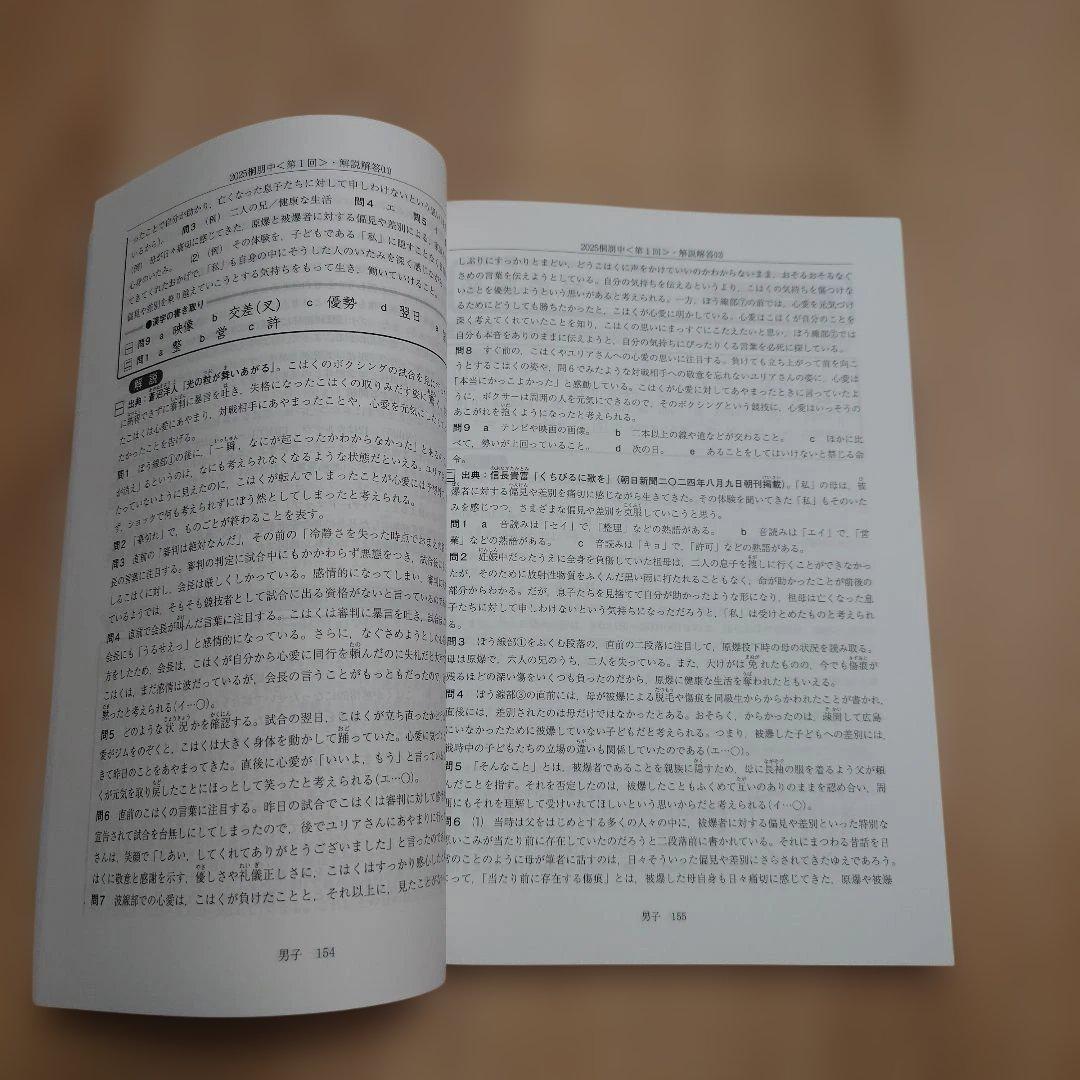 2025桐朋中<第1回>・解説解答(11)
ったことで自分が助かり,亡くなった息子たちに対して申しわけないという思い
いるから)。 問3 (例) 二人の兄/健康な生活 問4 エ 問5 イ
(例) 母が日々痛切に感じてきた,原爆と被爆者に対する偏見や差別による,
心身のいたみ。 (2) (例) その体験を,子どもである「私」に隠すことなく
できてくれたおかげで,「私」も自身の中にそうした人のいたみを深く感じな
偏見や差別を乗り越えていこうとする気持ちをもって生き,働いていけること。
●漢字の書き取り
一 問9 a 映像 b 交差(叉) c 優勢 d 翌日 e
二 問1 a 整 b 営 c 許
解説
一 出典:蒼沼洋人『光の粒が舞いあがる』。こはくのボクシングの試合を見に
に納得できずに審判に暴言を吐き,失格になったこはくの取りみだす姿に
たこはくは心愛にあやまり,対戦相手にあやまったことや,心愛を元気に
たかったことを告げる。
問1 ぼう線部①の後に,「一瞬,なにが起こったかわからなかった」とある
が消え」るというのは,なにも考えられなくなるような状態だといえる。ユリア
たっていないように見えたのに,こはくが転んでしまったことが心愛には
ず,ショックで何も考えられずにぼう然としてしまったと考えられる。
問2 「幕切れ」で,ものごとが終わることを表す。
問3 直前の「審判は絶対なんだ」,その前の「冷静さを失った時点でおまえ
長の言葉に注目する。審判の判定に試合中にもかかわらず悪態をつき,試合後
しるこはくに対し,会長は厳しくしかっている。感情的になってしまい,審判に
ているようでは,そもそも競技者として試合に出る資格がないと言っているの
問4 直前で会長が叫んだ言葉に注目する。こはくは審判に暴言を吐き,試合
会長にも「うるせえっ」と感情的になっている。さらに,なぐさめようとした
方をしたため,会長は,こはくが自分から心愛に同行を頼んだのに失礼だと
こはくは,まだ感情は波だっているが,会長の言うことがもっともだったので,
黙ったと考えられる(イ…○)。
問5 どのような状況かを確認する。試合の翌日,こはくが立ち直ったかどうか
愛がジムをのぞくと,こはくは大きく身体を動かして踊っていた。心愛に気づ
きて昨日のことをあやまってきた。直後に心愛が「いいよ,もう」と言ってい
くが元気を取り戻したことにほっとして笑ったと考えられる(エ…○)。
問6 直前のこはくの言葉に注目する。昨日の試合でこはくは審判に対して
宣告されて試合を台無しにしてしまったので,後でユリアさんにあやまりに行っ
さんは,笑顔で「しあい,してくれてありがとうございました」と言ったので
はくに敬意と感謝を示す,優しさや礼儀正しさに,こはくはすっかり感心した
問7 波線部での心愛は,こはくが負けたことと,それ以上に,見たことが
男子 154
2025桐朋中<第1回>・解説解答(12)
しぶりにすっかりとまどい,どうこはくに声をかけていいのかわからないまま,おそるおそるなぐ
さめの言葉を伝えようとしている。自分の気持ちを伝えるというより,こはくの気持ちを傷つけな
いことを優先しようという思いがあると考えられる。一方,ぼう線部⑦の前では,心愛を元気づけ
るためにどうしても勝ちたかったと,こはくが心愛に明かしている。心愛はこはくが自分のことを
深く考えてくれていたことを知り,こはくの思いにまっすぐにこたえたいと思い,ぼう線部⑦では
自分も本音をありのままに伝えようと,自分の気持ちにぴったりくる言葉を必死に探している。
問8 すぐ前の,こはくやユリアさんへの心愛の思いに注目する。負けても立ち上がって前を向こ
うとするこはくの姿や,問6でみたような対戦相手への敬意を忘れないユリアさんの姿に,心愛は
「本当にかっこよかった」と感動している。こはくが心愛に対してあやまったときに言っていたよ
うに,ボクサーは周囲の人を元気にできるので,そのボクシングという競技に,心愛はいっそうの
あこがれを抱くようになったと考えられる。
問9 a テレビや映画の画像。 b 二本以上の線や道などが交わること。 c ほかに比
べて,勢いが上回っていること。 d 次の日。 e あることをしてはいけないと禁じる命
令。
二 出典:信長貴富「くちびるに歌を」(朝日新聞二〇二四年八月九日朝刊掲載)。「私」の母は,被
爆者に対する偏見や差別を痛切に感じながら生きてきた。その体験を聞いてきた「私」もそのいた
みを感じつつ,さまざまな偏見や差別を克服していこうと思う。
問1 a 音読みは「セイ」で,「整理」などの熟語がある。 b 音読みは「エイ」で,「営
業」などの熟語がある。 c 音読みは「キョ」で,「許可」などの熟語がある。
問2 妊娠中だったうえに全身を負傷していた祖母は,二人の息子を捜しに行くことができなかっ
たが,そのために放射性物質をふくんだ黒い雨に打たれることもなく,命が助かったことが前後の
部分からわかる。だが,息子たちを見捨てて自分が助かったような形になり,祖母は亡くなった息
子たちに対して申しわけないという気持ちになっただろうと,「私」は受けとめたものと考えられ
る。
問3 ぼう線部①をふくむ段落の,直前の二段落に注目して,原爆投下時の母の状況を読み取る。
母は原爆で,六人の兄のうち,二人を失っている。また,大けがは免れたものの,今でも傷痕が
残るほどの深い傷をいくつも負ったのだから,原爆に健康な生活を奪われたともいえる。
問4 ぼう線部③の直前には,母が被爆による脱毛や傷痕を同級生からからかわれたことが書かれ,
直後には,差別されたのは母だけではなかったとある。おそらく,からかったのは,疎開して広島
にいなかったために被爆していない子どもだと考えられる。つまり,被爆した子どもへの差別には,
戦時中の子どもたちの立場の違いも関係していたのである(エ…○)。
問5 「そんなこと」とは,被爆者であることを親族に隠すため,母に長袖の服を着るよう父が頼
んだことを指す。それを否定したのは,被爆したこともふくめて互いのありのままを認め合い,周
囲にもそれを理解して受けいれてほしいという思いからだと考えられる(イ…○)。
問6 (1) 当時は父をはじめとする多くの人々の中に,被爆者に対する偏見や差別といった特別な
思いこみが当たり前に存在していたのだろうと二段落前に書かれている。それにまつわる昔話を日
常のことのように母が筆者に話すのは,日々そういった偏見や差別にさらされてきたゆえであろう。
よって,「当たり前に存在する傷痕」とは,被爆した母自身も日々痛切に感じてきた,原爆や被爆
男子 155